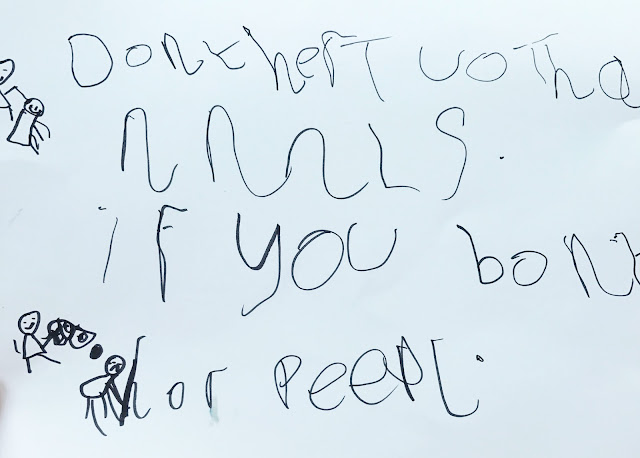 Dont herT uoThe
nnnLS.
iF you bont
hor PeePL.